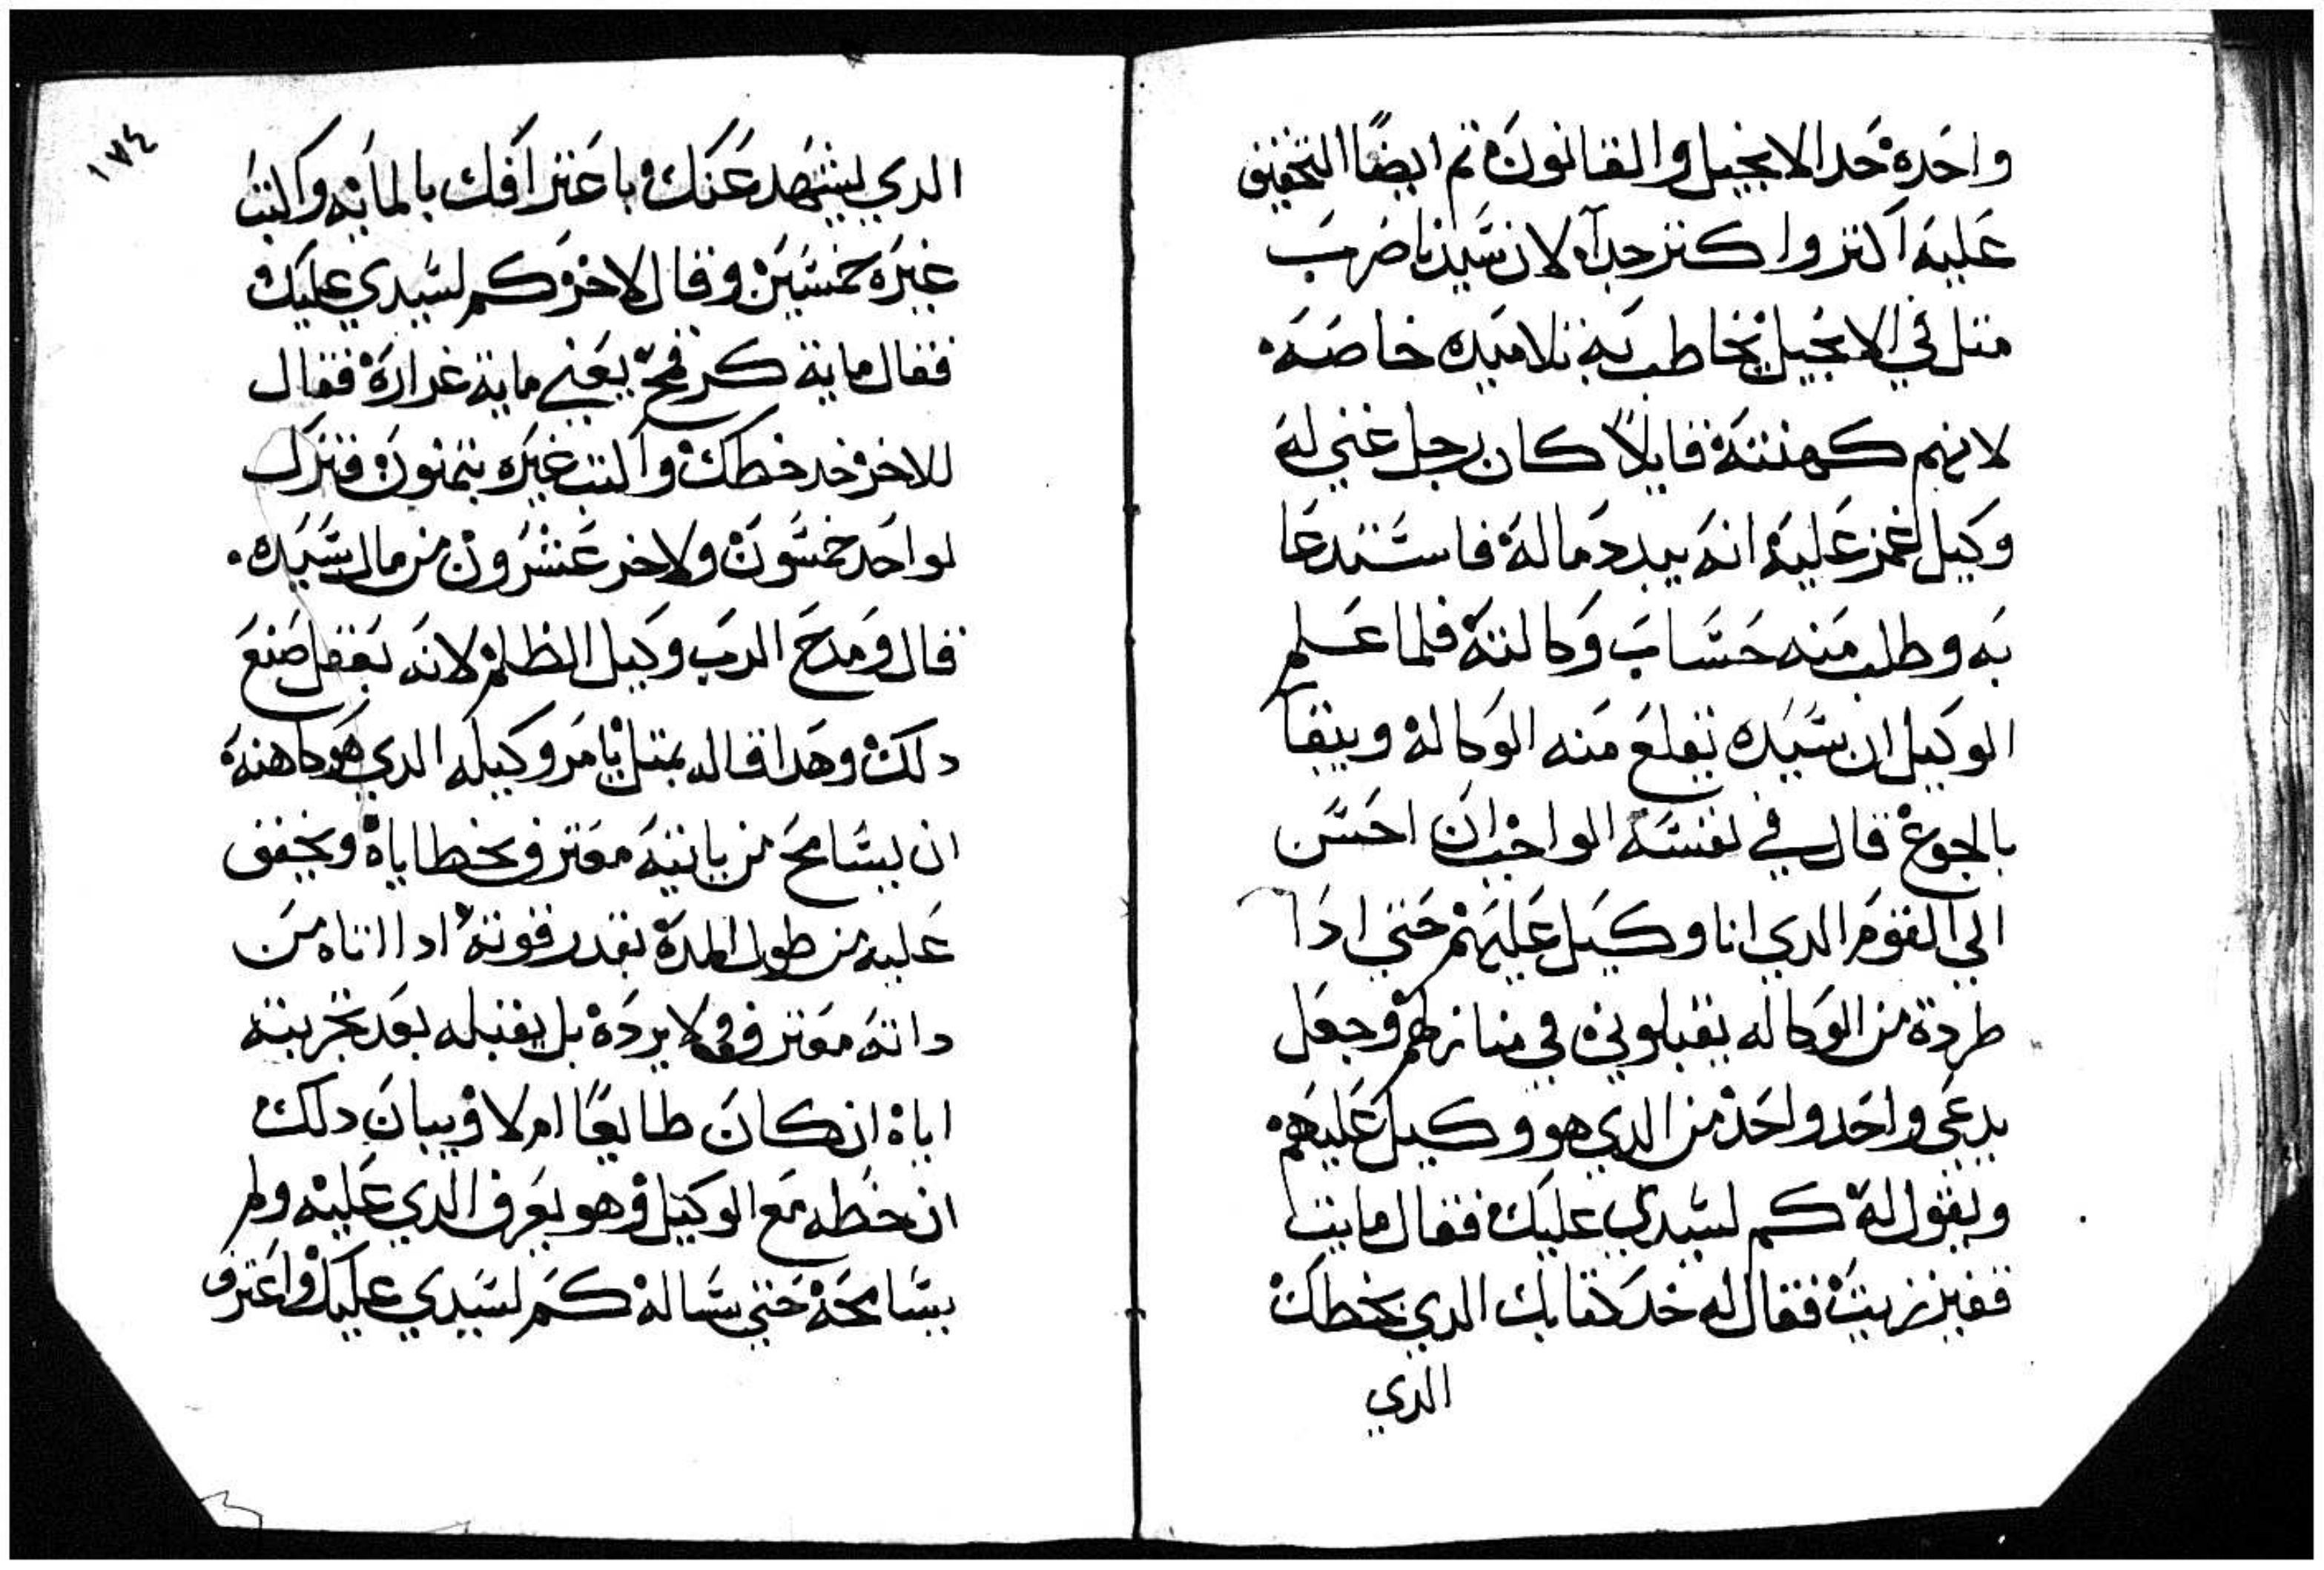 واحده حد الانجيل والقانون تم ايضًا التخفيف
عليه اكتر واكتر جدآ لان سيدنا ضرب
متل في الانجيل يخاطب به تلاميده خاصه
لانهم كهنته قايلاً كان رجل غني له
وكيل غمز عليه انه يبدد ماله فاستدعا
به وطلب منه حساب وكالته فلما علم
الوكيل ان سيده يقلع منه الوكاله ويبقا
بالجوع قال في نفسه الواجب ان احسن
الي القوم الدي انا وكيل عليهم حتي ادا
طردة من الوكاله يقبلوني في منازلهم وجعل
يدعي واحد واحد من الدي هو وكيل عليهم
ويقول له كم لسيدي عليك فقال مايت
قفيز زيت فقال له خد كتابك الدي بخطك
الدي
١٧٤
الدي يشهد عنك باعترافك بالمايه واكتب
غيره خمسين وقال لاخر وكم لسيدي عليك
فقال ماية كر قمح يعني ماية غراره فقال
للاخر خد خطك واكتب غيره بتمنون فترك
لواحد خمسون ولاخر عشرون من مال سيده
قال ومدح الرب وكيل الظلم لانه بعقل صنع
دلك وهدا قاله بمتل يامر وكيله الدي هو كاهنه
ان يسامح من ياتيه معترف بخطاياه ويخفف
عليه من طول المدة بقدر قوته ادا اتاه من
داته معترف ولا يرده بل يقبله بعد تجربته
اياه ان كان طايعًا ام لا وبيان دلك
ان خطه مع الوكيل وهو يعرف الدي عليه ولم
يسامحه حتي ساله كم لسيدي عليك واعترف